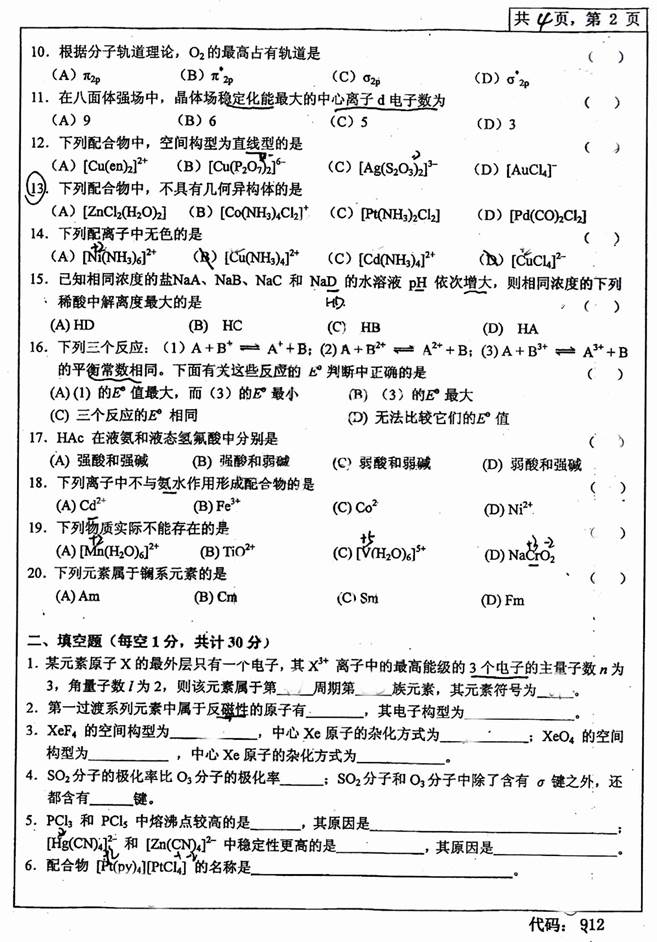 共 4 页，第 2 页
10．根据分子轨道理论，O₂的最高占有轨道是 （ ）
（A）π₂p （B）π*₂p （C）σ₂p （D）σ*₂p
11．在八面体强场中，晶体场稳定化能最大的中心离子 d 电子数为 （ ）
（A）9 （B）6 （C）5 （D）3
12．下列配合物中，空间构型为直线型的是 （ ）
（A）[Cu(en)₂]²⁺ （B）[Cu(P₂O₇)₂]⁶⁻ （C）[Ag(S₂O₃)₂]³⁻ （D）[AuCl₄]⁻
13．下列配合物中，不具有几何异构体的是
（A）[ZnCl₂(H₂O)₂] （B）[Co(NH₃)₄Cl₂]⁺ （C）[Pt(NH₃)₂Cl₂] （D）[Pd(CO)₂Cl₂]
14．下列配离子中无色的是 （ ）
（A）[Ni(NH₃)₆]²⁺ （B）[Cu(NH₃)₄]²⁺ （C）[Cd(NH₃)₄]²⁺ （D）[CuCl₄]²⁻
15．已知相同浓度的盐NaA、NaB、NaC 和 NaD 的水溶液 pH 依次增大，则相同浓度的下列
稀酸中解离度最大的是 HD （ ）
(A) HD (B) HC (C) HB (D) HA
16．下列三个反应：（1）A + B⁺ ⇌ A⁺ + B；(2) A + B²⁺ ⇌ A²⁺ + B；(3) A + B³⁺ ⇌ A³⁺ + B
的平衡常数相同。下面有关这些反应的 E° 判断中正确的是 （ ）
(A) (1) 的E° 值最大，而（3）的E° 最小 (B) （3）的E° 最大
(C) 三个反应的E° 相同 (D) 无法比较它们的E° 值
17．HAc 在液氨和液态氢氟酸中分别是 （ ）
(A) 强酸和强碱 (B) 强酸和弱碱 (C) 弱酸和弱碱 (D) 弱酸和强碱
18．下列离子中不与氨水作用形成配合物的是 （ ）
(A) Cd²⁺ (B) Fe³⁺ (C) Co² (D) Ni²⁺
19．下列物质实际不能存在的是 （ ）
+2 +5 +3 -2
(A) [Mn(H₂O)₆]²⁺ (B) TiO²⁺ (C) [V(H₂O)₆]⁵⁺ (D) NaCrO₂
20．下列元素属于镧系元素的是 （ ）
(A) Am (B) Cm (C) Sm (D) Fm
二、填空题（每空 1 分，共计 30 分）
1．某元素原子 X 的最外层只有一个电子，其 X³⁺ 离子中的最高能级的 3 个电子的主量子数 n 为
3，角量子数 l 为 2，则该元素属于第____周期第____族元素，其元素符号为____。
2．第一过渡系列元素中属于反磁性的原子有______，其电子构型为____________。
3．XeF₄ 的空间构型为_________，中心 Xe 原子的杂化方式为_________；XeO₄ 的空间
构型为_________，中心 Xe 原子的杂化方式为_________。
4．SO₂分子的极化率比 O₃分子的极化率_____；SO₂分子和 O₃分子中除了含有 σ 键之外，还
都含有_____键。
5．PCl₃ 和 PCl₅ 中熔沸点较高的是_____，其原因是______________________________；
[Hg(CN)₄]²⁻ 和 [Zn(CN)₄]²⁻ 中稳定性更高的是_________，其原因是______________。
6．配合物 [Pt(py)₄][PtCl₄] 的名称是______________________________。
代码： 912